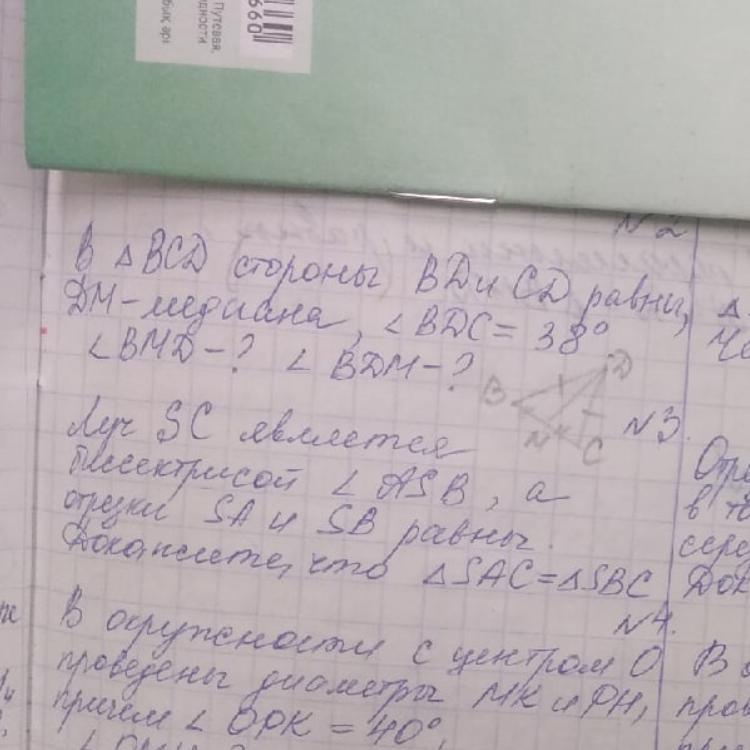 Путевая,
660
N2
В △BCD стороны BD и CD равны,
DM-медиана, ∠BDC = 38°
∠BMD-? ∠BDM-?
B D M C
N3.
Луч SC является
биссектрисой ∠ASB, а
отрезки SA и SB равны.
Докажите, что △SAC=△SBC
N4.
В окружности с центром O
проведены диаметры MK и PH,
причем ∠OPK = 40°,
△
Че
Отре
в то
сере
Док
В о
пров